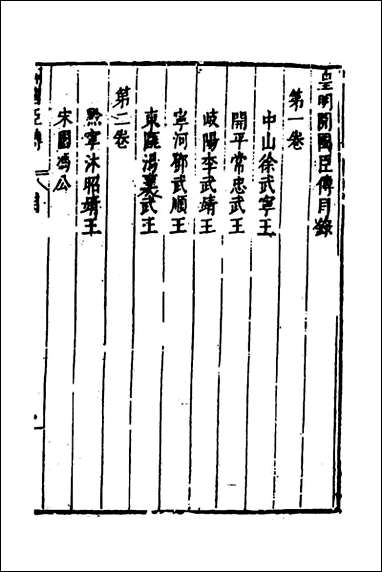 皇明開國臣傳目錄
第一卷
中山徐武寧王
開平常忠武王
岐陽李武靖王
寧河鄧武順王
東甌湯襄武王
第二卷
黔寧沐昭靖王
宋國馮公